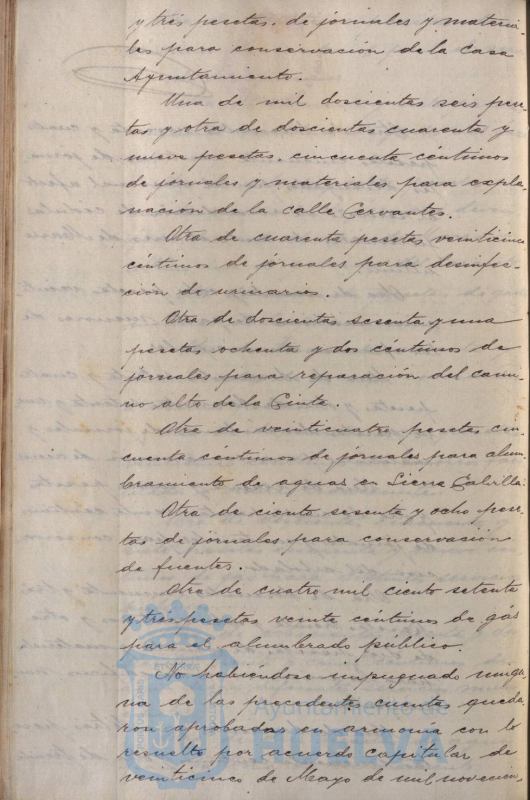 y tres pesetas. de jornales y materia-
les para conservación de la Casa
Ayuntamiento.
Una de mil doscientas seis pese-
tas y otra de doscientas cuarenta y
nueve pesetas, cincuenta céntimos
de jornales y materiales para expla-
nación de la calle Cervantes.
Otra de cuarenta pesetas veinticinco
céntimos de jornales para desinfec-
ción de urinarios.
Otra de doscientas sesenta y una
pesetas ochenta y dos céntimos de
jornales para reparación del cami-
no alto de la Cinta.
Otra de veinticuatro pesetas cin-
cuenta céntimos de jornales para alum-
bramiento de aguas en Sierra Calvilla.
Otra de ciento sesenta y ocho pese-
tas de jornales para conservación
de fuentes.
Otra de cuatro mil ciento setenta
y tres pesetas veinte céntimos de gas
para el alumbrado público.
No habiéndose impugnado ningu-
na de las precedentes cuentas queda-
ron aprobadas en armonia con lo
resuelto por acuerdo capitular de
veinticinco de Mayo de mil novecien-
Ayuntamiento de
HUELVA